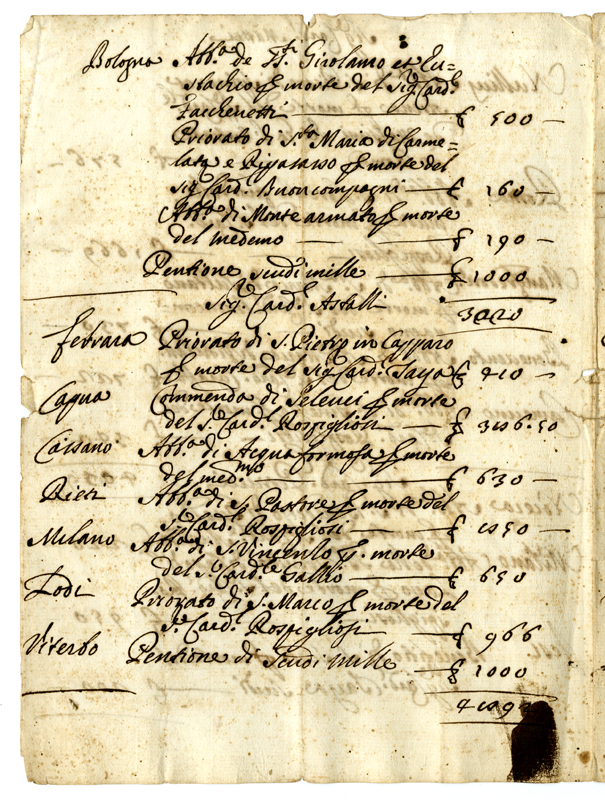 Bologna Abb.a de SS.ti Girolamo et Eu=
stachio p morte del Sig.r Card.l
Facchenetti £ 500
Priorato di S.ta Maria di Carme=
lata e Rigasasso p morte del
Sig.r Card.l Buoncompagni £ 160
Abb.a di Monte armato p morte
del medemo £ 190
Pentione scudi mille £ 1000
Sig.r Card.l Astalli
Ferrara Priorato di S. Pietro in Capparo
p morte del Sig.r Card.l £ 410
Capua Commenda di p morte
del S.r Card.l Rospigliosi £
Cassano Abb.a di Acqua formosa p morte
del med.mo £ 630
Rieti Abb.a di S. Pastore p morte del
S.r Card.l Rospigliosi £
Milano Abb.a di S. Vincenzo p morte
del S.r Card.le Gallio £ 650
Lodi Priorato di S. Marco p morte del
S.r Card.l Rospigliosi £ 966
Viterbo Pentione di Scudi mille £ 1000